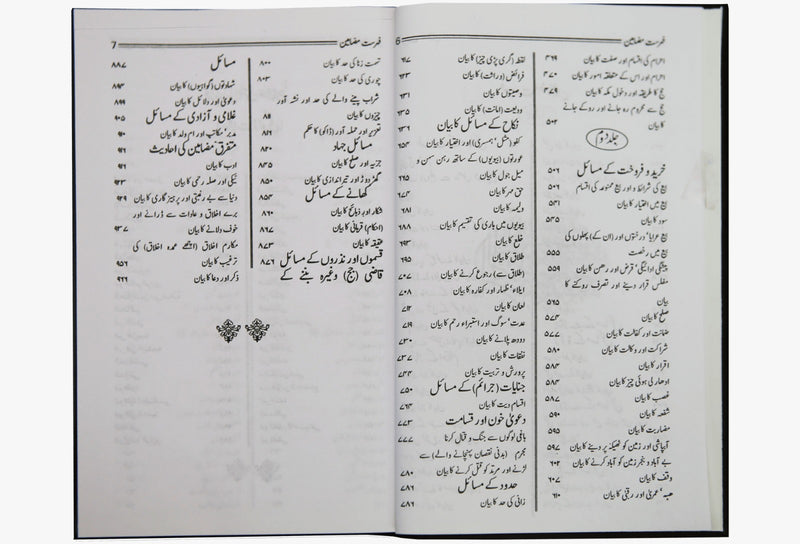 فہرست مضامین
6
احرام کی اقسام اور صفت کا بیان ۴۶۹
احرام اور اس کے متعلقہ امور کا بیان ۴۷۰
حج کا طریقہ اور دخول مکہ کا بیان ۴۷۹
حج سے محروم رہ جانے اور روکے جانے
کا بیان ۵۰۴
جلد دوم
خرید و فروخت کے مسائل ۵۰۶
بیع کی شرائط و اور بیع ممنوعہ کی اقسام ۵۰۶
بیع میں اختیار کا بیان ۵۴۱
سود کا بیان ۵۴۵
بیع عرایا' درختوں اور (ان کے) پھلوں کی
بیع میں رخصت ۵۵۵
پیشگی ادائیگی' قرض اور رھن کا بیان ۵۵۹
مفلس قرار دینے اور تصرف روکنے کا
بیان ۵۶۵
صلح کا بیان ۵۷۴
ضمانت اور کفالت کا بیان ۵۷۷
شراکت اور وکالت کا بیان ۵۸۰
اقرار کا بیان ۵۸۳
ادھار لی ہوئی چیز کا بیان ۵۸۴
غصب کا بیان ۵۸۷
شفعہ کا بیان ۵۹۰
مضاربت کا بیان ۵۹۵
آبپاشی اور زمین کو ٹھیکہ پر دینے کا بیان ۵۹۷
بے آباد و بنجر زمین کو آباد کرنے کا بیان ۶۰۲
وقف کا بیان ۶۰۷
ھبہ' عمریٰ اور رقبیٰ کا بیان ۶۱۰
لقطہ (گری پڑی چیز) کا بیان ۶۱۷
فرائض (وراثت) کا بیان ۶۲۳
وصیتوں کا بیان ۶۳۱
ودیعت (امانت) کا بیان ۶۳۵
نکاح کے مسائل کا بیان ۶۳۶
کفو (مثل' ہمسری) اور اختیار کا بیان ۶۵۴
عورتوں (بیویوں) کے ساتھ رہن سہن و
میل جول کا بیان ۶۶۵
حق مہر کا بیان ۶۷۴
ولیمہ کا بیان ۶۸۱
بیویوں میں باری کی تقسیم کا بیان ۶۸۸
خلع کا بیان ۶۹۳
طلاق کا بیان ۶۹۵
(طلاق سے) رجوع کرنے کا بیان ۷۰۷
ایلاء' ظہار اور کفارہ کا بیان ۷۰۸
لعان کا بیان ۷۱۲
عدت' سوگ اور استبراء رحم کا بیان ۷۱۹
دودھ پلانے کا بیان ۷۳۰
نفقات کا بیان ۷۳۷
پرورش و تربیت کا بیان ۷۴۴
جنایات (جرائم) کے مسائل ۷۵۰
اقسام دیت کا بیان ۷۶۳
دعویٰ خون اور قسامت ۷۷۳
باغی لوگوں سے جنگ و قتال کرنا ۷۷۷
مجرم (بدنی نقصان پہنچانے والے) سے
لڑنے اور مرتد کو قتل کرنے کا بیان ۷۸۰
حدود کے مسائل ۷۸۶
زانی کی حد کا بیان ۷۸۶
فہرست مضامین
7
تہمت زنا کی حد کا بیان ۸۰۰
چوری کی حد کا بیان ۸۰۳
شراب پینے والے کی حد اور نشہ آور
چیزوں کا بیان ۸۱۱
تعزیر اور حملہ آور (ڈاکو) کا حکم ۸۱۶
مسائل جہاد ۸۲۰
جزیہ اور صلح کا بیان ۸۴۵
گھڑ دوڑ اور تیر اندازی کا بیان ۸۵۰
کھانے کے مسائل ۸۵۳
شکار اور ذبائح کا بیان ۸۶۰
(احکام) قربانی کا بیان ۸۶۷
عقیقہ کا بیان ۸۷۳
قسموں اور نذروں کے مسائل ۸۷۶
قاضی (جج) وغیرہ بننے کے
مسائل ۸۸۷
شہادتوں (گواہیوں) کا بیان ۸۹۴
دعویٰ اور دلائل کا بیان ۸۹۹
غلامی و آزادی کے مسائل ۹۰۵
مدبر' مکاتب اور ام ولد کا بیان ۹۱۰
متفرق مضامین کی احادیث ۹۱۶
ادب کا بیان ۹۱۶
نیکی اور صلہ رحمی کا بیان ۹۲۳
دنیا سے بے رغبتی اور پرہیز گاری کا بیان ۹۲۹
برے اخلاق و عادات سے ڈرانے اور
خوف دلانے کا بیان ۹۳۷
مکارم اخلاق (اچھے عمدہ اخلاق) کی
ترغیب کا بیان ۹۵۶
ذکر اور دعا کا بیان ۹۶۶